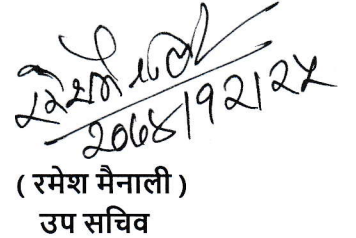 २०७४।१२।२५
( रमेश मैनाली )
उप सचिव